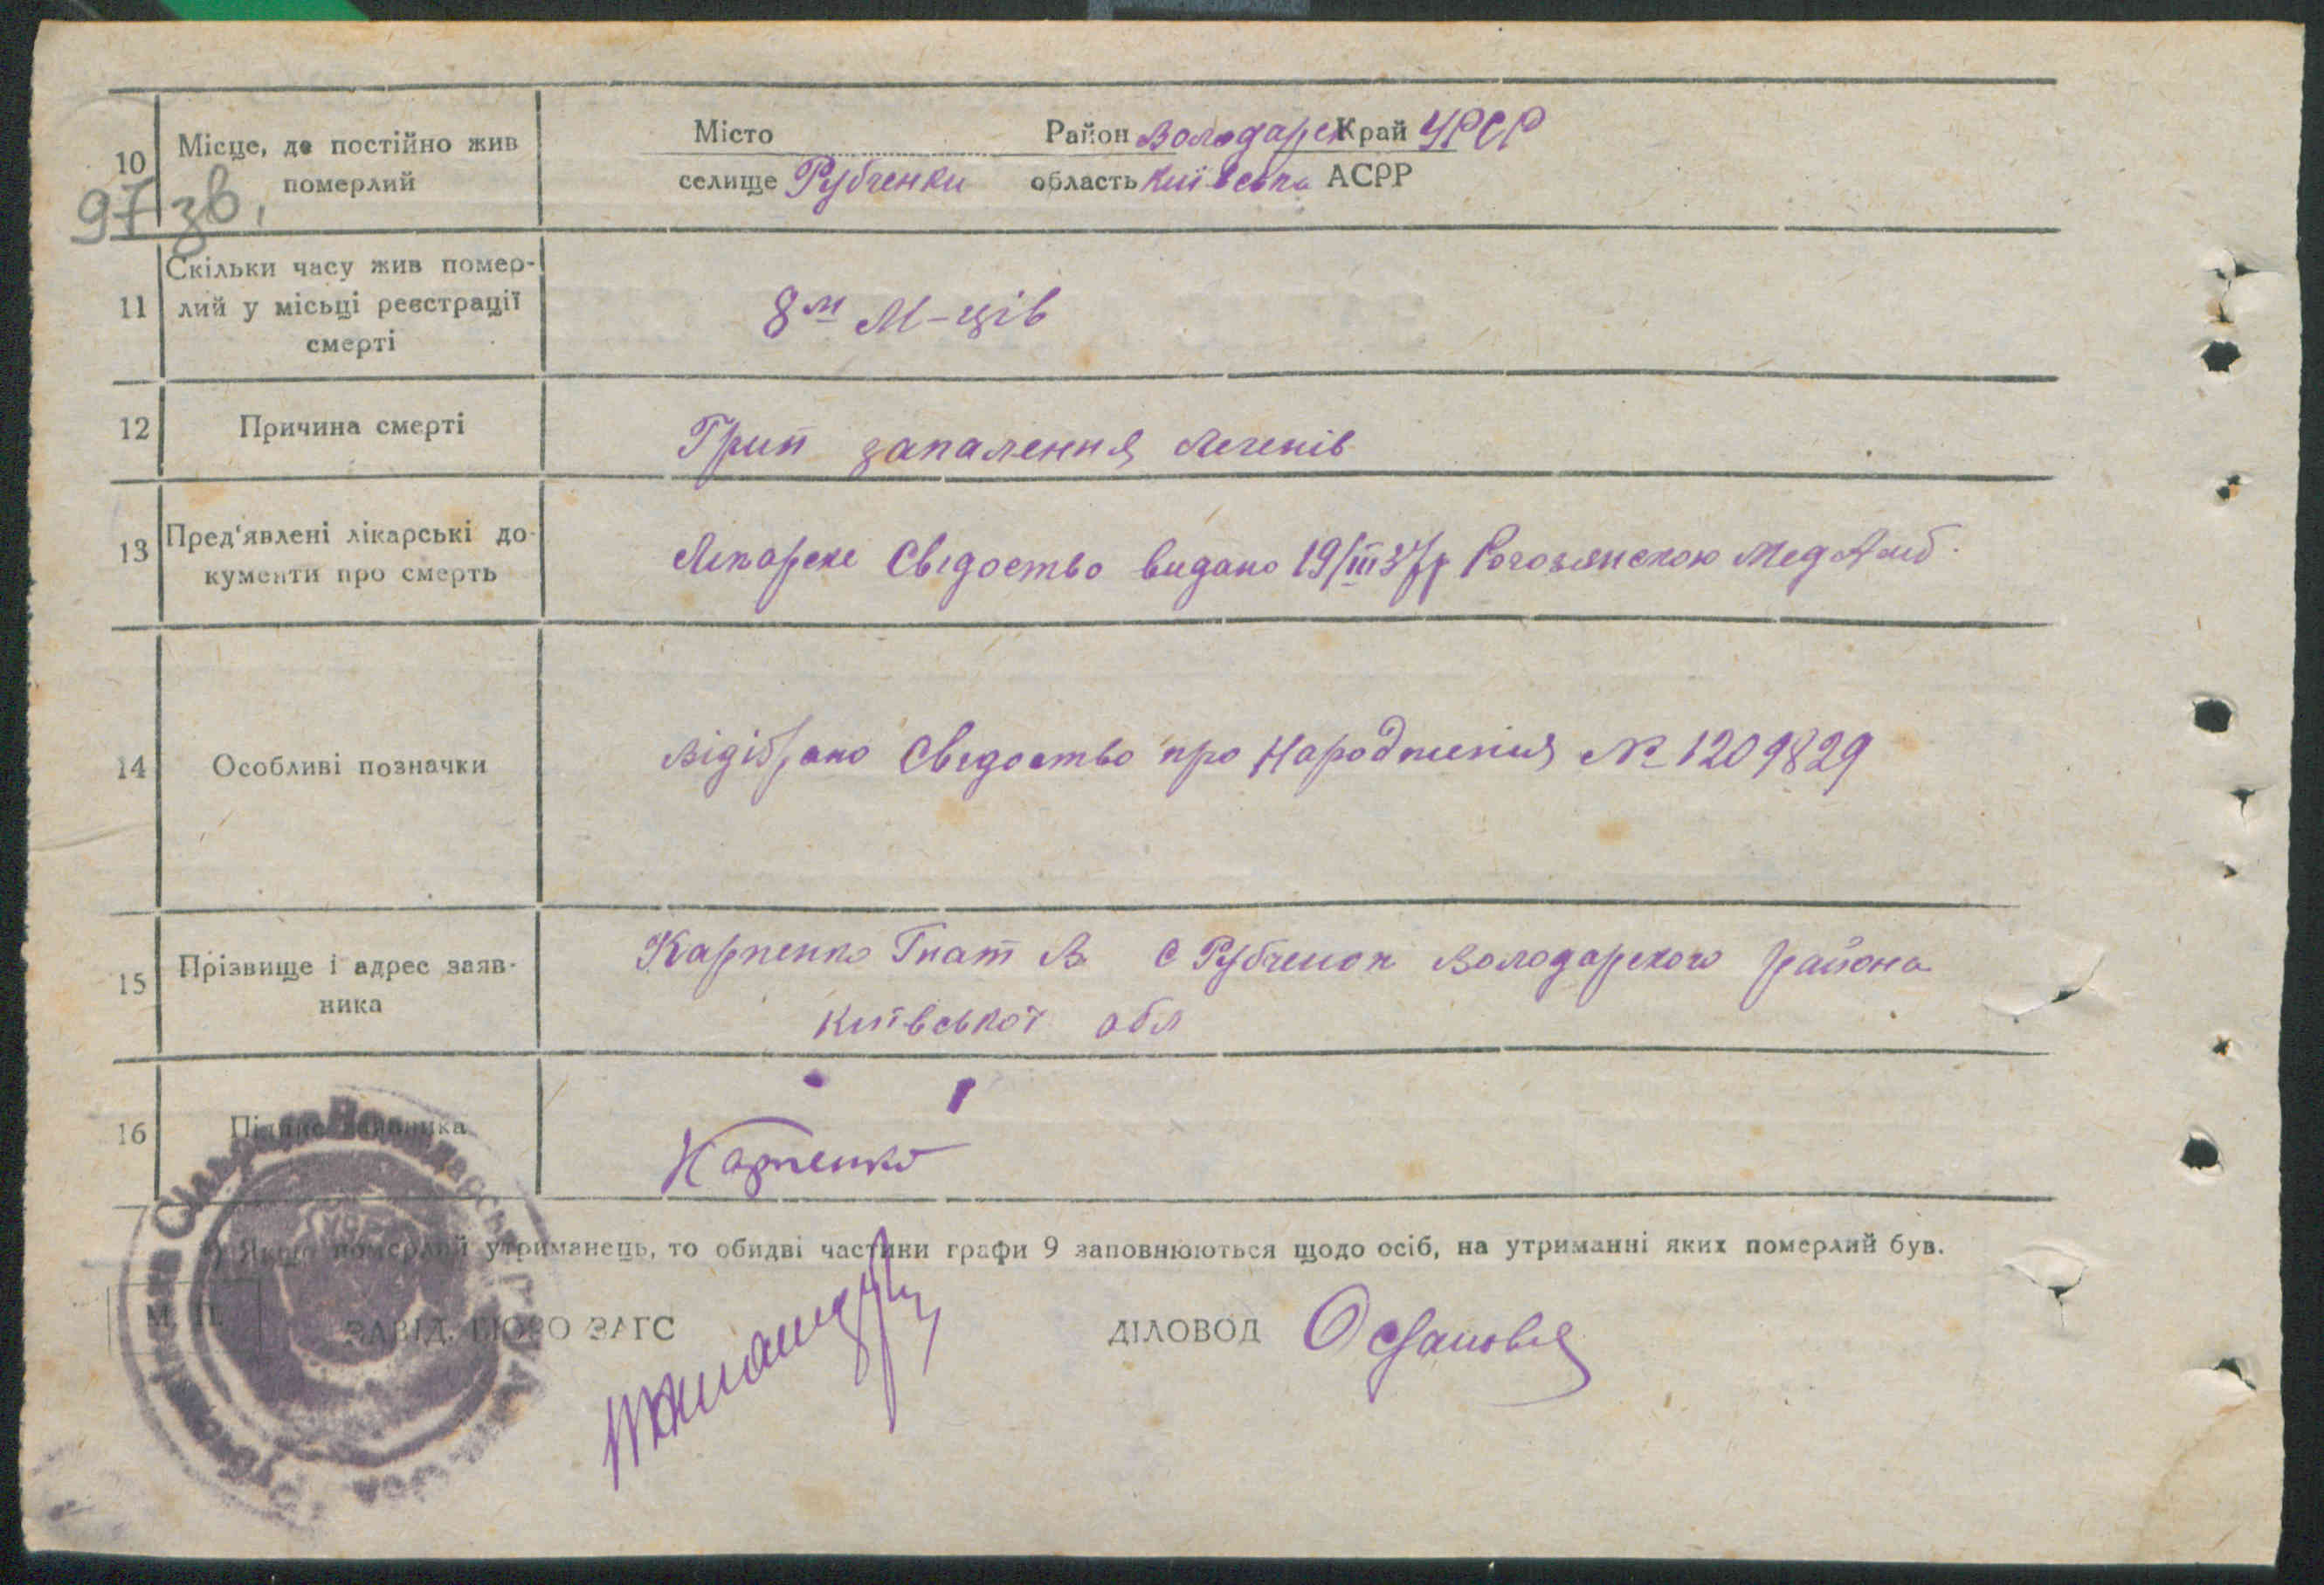 10 Місце, де постійно жив
померлий
97 зв.
Місто Район Володарск Край УРСР
селище Рубченки область Київська АСРР
11 Скільки часу жив помер-
лий у місьці реєстрації
смерті
8м М-ців
12 Причина смерті
Грип запалення легенів
13 Пред'явлені лікарські до-
кументи про смерть
Лікарске Свідоство видано 19/III 37р Мед Амб.
14 Особливі позначки
Відібрано Свідоство про Народження № 1209829
15 Прізвище і адрес заяв-
ника
Карпенко Гнат В. с Рубченок Володарского района
Київської обл
16 Підпис заявника
Карпенко
*) Якщо померлий утриманець, то обидві частини графи 9 заповнюються щодо осіб, на утриманні яких померлий був.
М. П.
ЗАВІД. БЮРО ЗАГС
ДІЛОВОД